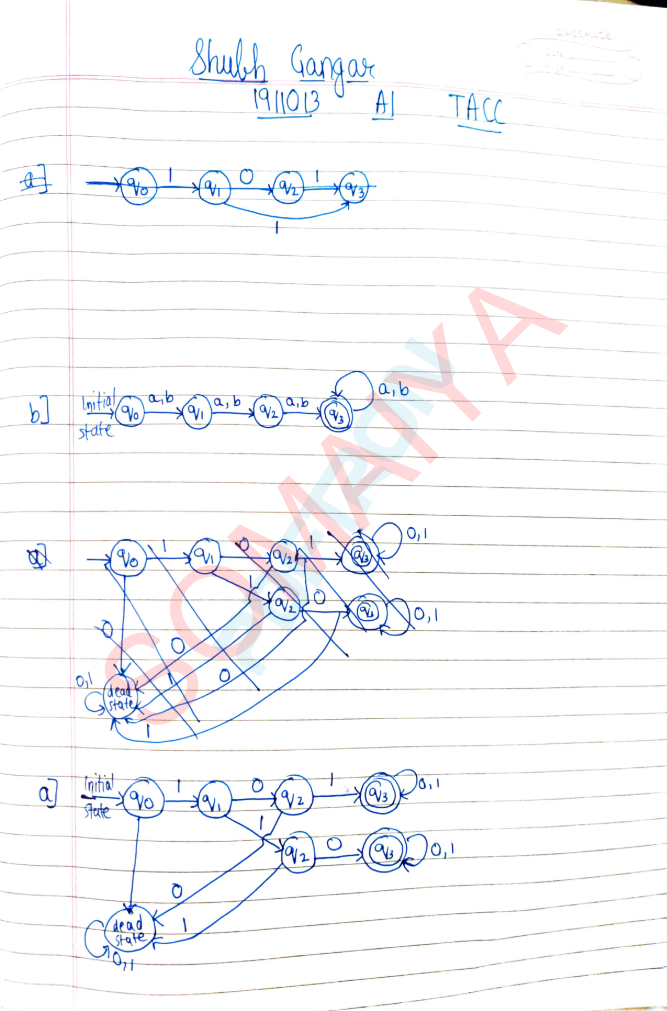 Shubh Gangar
1911013 A1 TACC
a]
q0 1 q1 0 q2 1 q3
1
SOMAIYA
b] Initial state q0 a,b q1 a,b q2 a,b q3 a,b
a] q0 1 q1 0 q2 1 q3 0,1
1 q2 0 q3 0,1
0
0
1
0
0,1 dead state
1
a] Initial state q0 1 q1 0 q2 1 q3 0,1
1 q2 0 q3 0,1
0
dead state 1
0,1